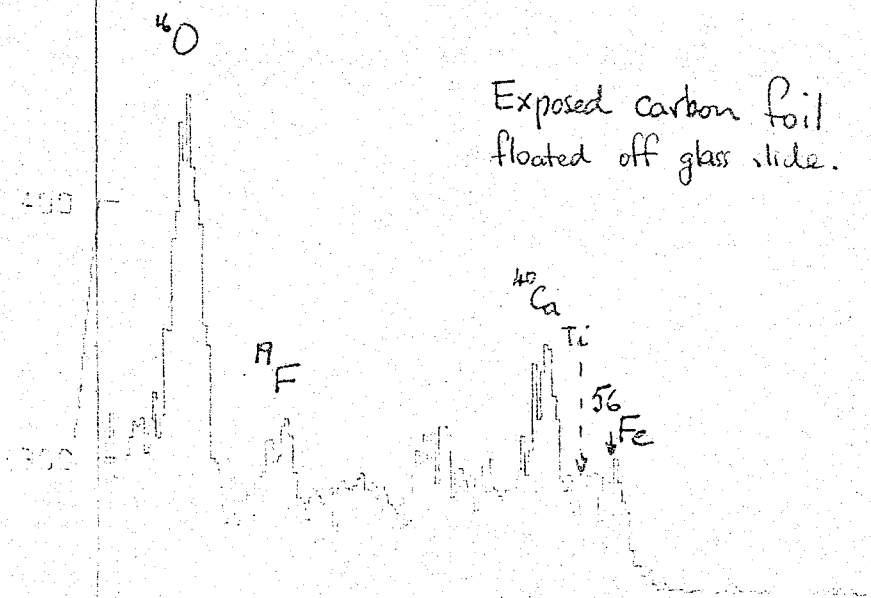 16O
Exposed carbon foil
floated off glass slide.
400
40Ca
Ti
19F
56Fe
300